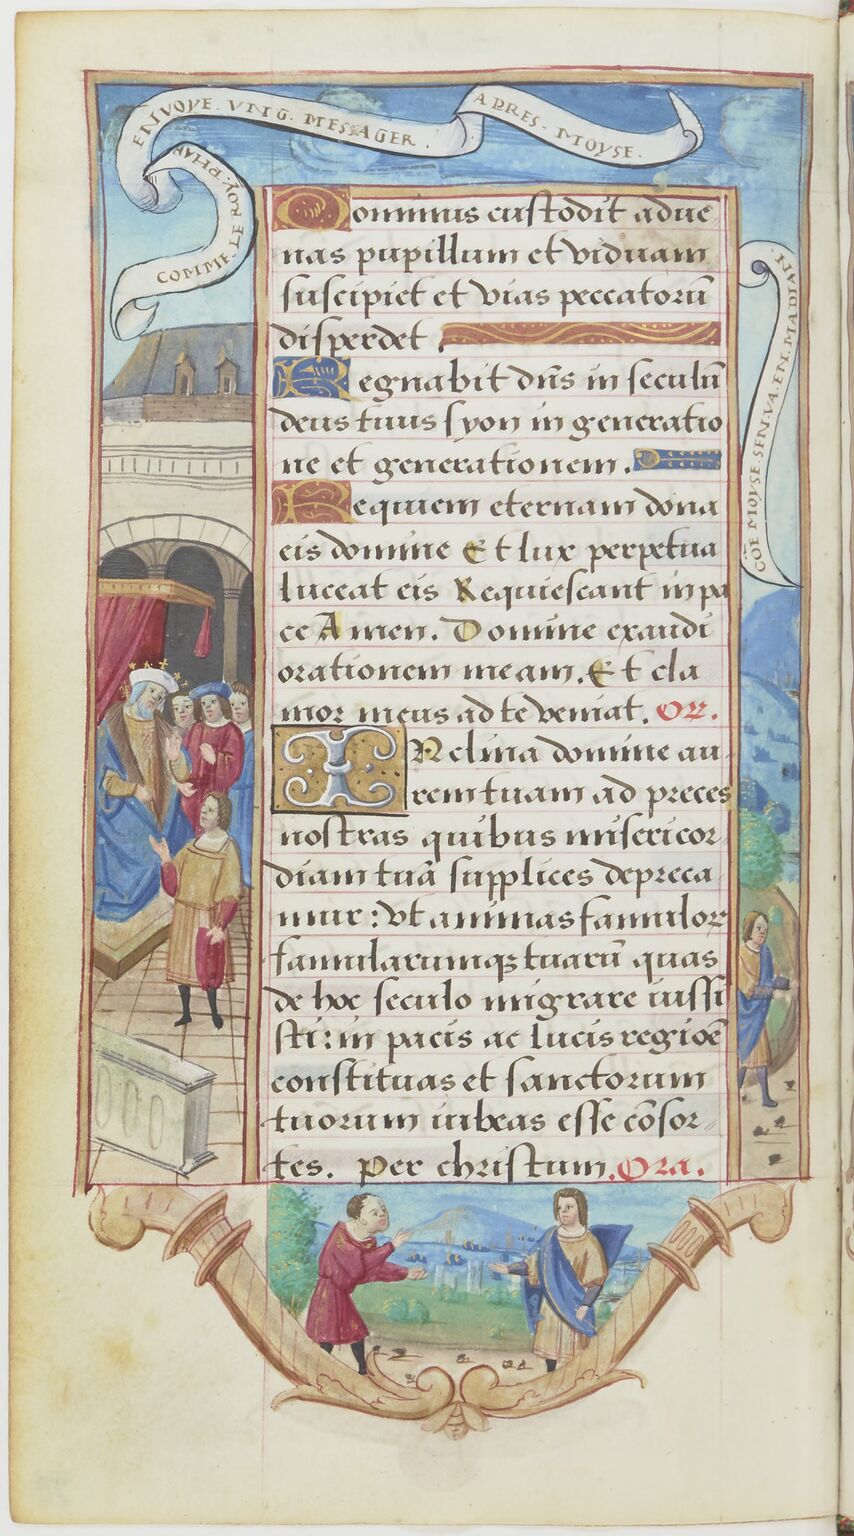 COMME. ET ROY. PHAR
ENVOYE. VNG. MESSAGER.
APRES. MOYSE.
Dominus custodit adue
nas pupillum et viduam
suscipiet et vias peccatorū
disperdet.
Regnabit dn̄s in seculū
deus tuus syon in generatio
ne et generationem.
Requiem eternam dona
eis domine Et lux perpetua
luceat eis Requiescant in pa
ce Amen. Domine exaudi
orationem meam. Et cla
mor meus ad te veniat. Or.
INclina domine au
rem tuam ad preces
nostras quibus misericor
diam tuā supplices depreca
mur: vt animas famulor
famularumqꝫ tuarū quas
de hoc seculo migrare iussi
sti: in pacis ac lucis regiōe
constituas et sanctorum
tuorum iubeas esse cōsor
tes. Per christum. Ora.
COE MOYSE. SEN. VA. EN. MADIAN.